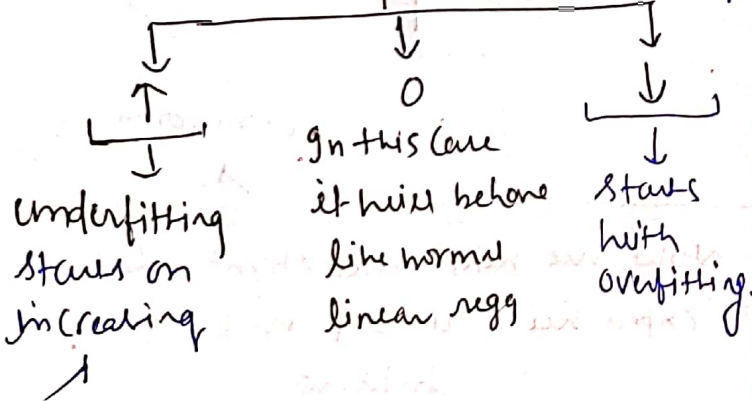 ↓ ↓ ↓
↑ 0 ↓
↓
underfitting
starts on
increasing
λ
In this case
it will behave
like normal
linear regg
↓
starts
with
overfitting.